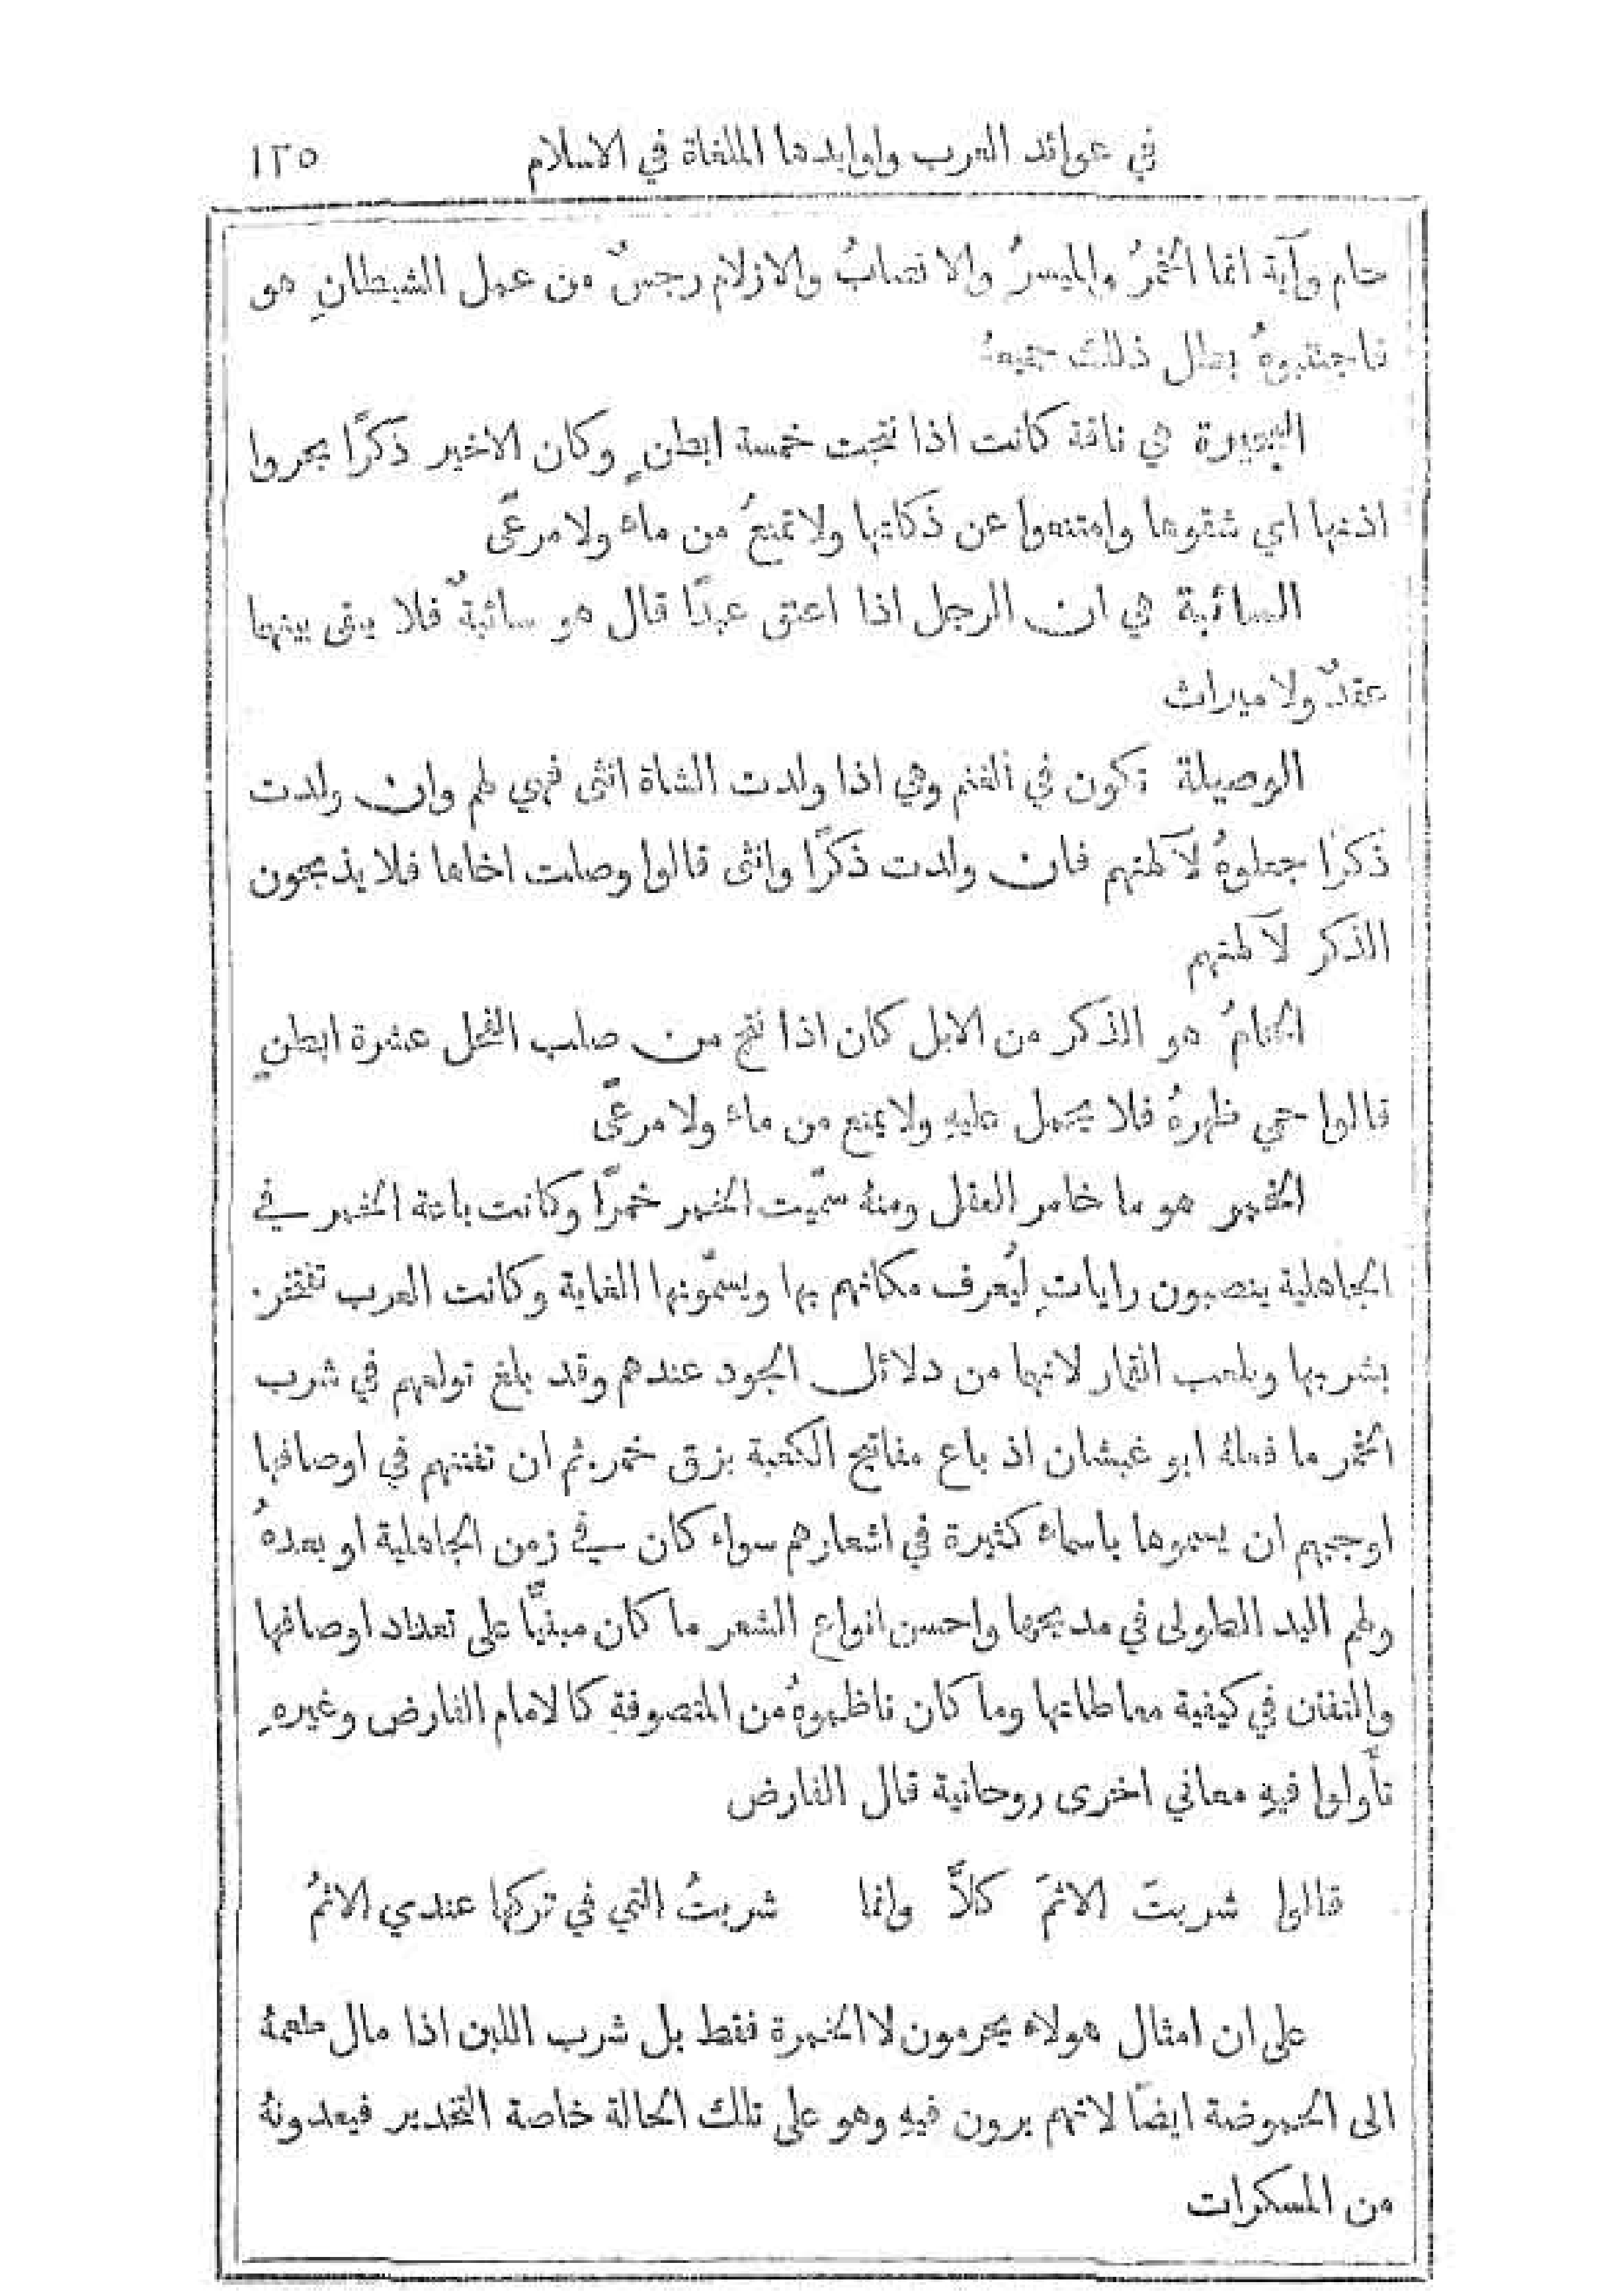 في عوائد العرب واوابدها الملغاة في الاسلام ١٢٥
حام وآية انما الخمرُ والميسرُ والانصابُ والازلام رجسٌ من عمل الشيطانِ هو
فاجتنبوهُ بطل ذلك جميعهُ
البحيرة هي ناقة كانت اذا نتجت خمسة ابطنٍ وكان الاخير ذكرًا بحروا
اذنها اي شقوها وامتنعوا عن ذكاتها ولا تمنعُ من ماء ولا مرعًى
السائبة هي ان الرجل اذا اعتق عبدًا قال هو سائبةٌ فلا يبقى بينهما
عقدٌ ولا ميراث
الوصيلة تكون في الغنم وهي اذا ولدت الشاة انثى فهي لهم وان ولدت
ذكرًا جعلوهُ لآلهتهم فان ولدت ذكرًا وانثى قالوا وصلت اخاها فلا يذبحون
الذكر لآلهتهم
الحامُ هو الذكر من الابل كان اذا نتج من صلب الفحل عشرة ابطنٍ
قالوا حمي ظهرهُ فلا يحمل عليهِ ولا يمنع من ماء ولا مرعًى
الخمر هو ما خامر العقل ومنهُ سمّيت الخمر خمرًا وكانت باعة الخمر في
الجاهلية ينصبون راياتٍ ليُعرف مكانهم بها ويسمّونها الغاية وكانت العرب تفتخر
بشربها وبلعب القمار لانها من دلائل الجود عندهم وقد بلغ تولعهم في شرب
الخمر ما فعلهُ ابو غبشان اذ باع مفاتيح الكعبة بزق خمر. ثم ان تفننهم في اوصافها
اوجبهم ان يسموها باسماء كثيرة في اشعارهم سواء كان في زمن الجاهلية او بعدهُ
ولهم اليد الطولى في مديحها واحسن انواع الشعر ما كان مبنيًّا على تعداد اوصافها
والتفنن في كيفية معاطاتها وما كان ناظموهُ من المتصوفة كالامام الفارض وغيرهِ
تأَولوا فيهِ معاني اخرى روحانية قال الفارض
قالوا شربتَ الاثمَ كلاَّ وانما شربتُ التي في تركها عندي الاثمُ
على ان امثال هولاء يحرمون لا الخمرة فقط بل شرب اللبن اذا مال طعمهُ
الى الحموضة ايضًا لانهم يرون فيهِ وهو على تلك الحالة خاصة التخدير فيعدونهُ
من المسكرات